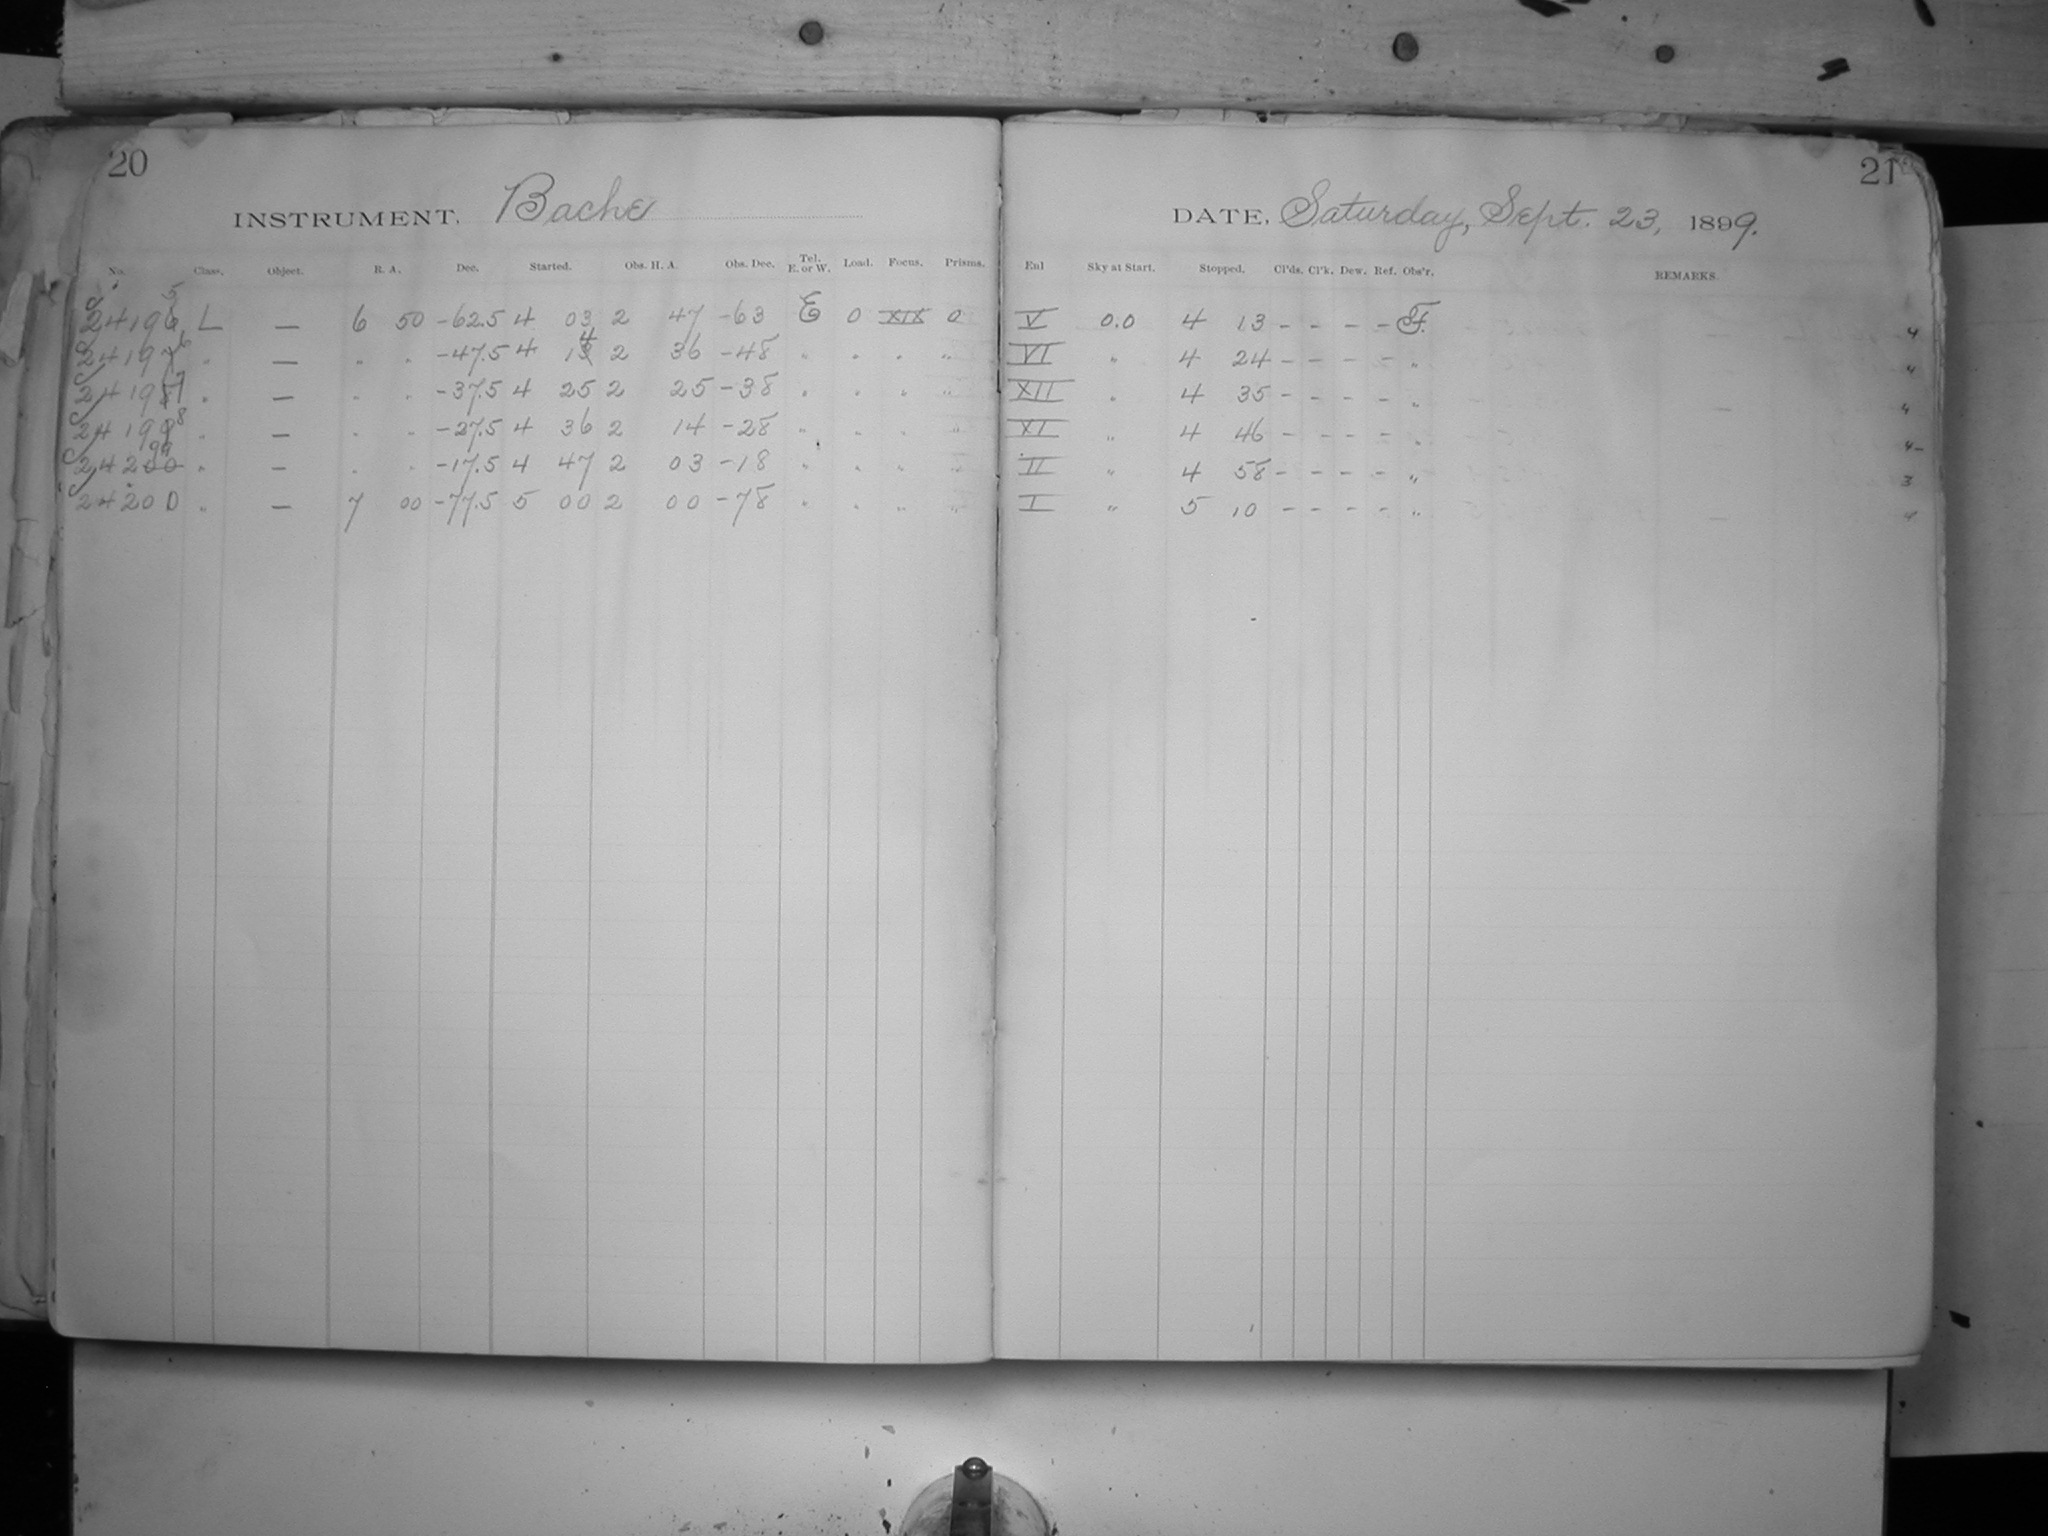 20
INSTRUMENT. Bache
No. Class. Object. R. A. Dec. Started. Obs. H. A. Obs. Dec. Tel. E. or W. Load. Focus. Prisms.
24195 L — 6 50 -62.5 4 03 2 47 -63 E 0 XIX 0
24196 " — " " -47.5 4 14 2 36 -48 " " " "
24197 " — " " -37.5 4 25 2 25 -38 " " " "
24198 " — " " -27.5 4 36 2 14 -28 " " " "
24199 " — " " -17.5 4 47 2 03 -18 " " " "
24200 " — 7 00 -77.5 5 00 2 00 -78 " " " "
21
DATE, Saturday, Sept. 23, 1899.
Enl Sky at Start. Stopped. Cl'ds. Cl'k. Dew. Ref. Obs'r. REMARKS.
V 0.0 4 13 - - - - 4
VI " 4 24 - - - - " 4
XII " 4 35 - - - - " 4
XI " 4 46 - - - - " 4
II " 4 58 - - - - " 3
I " 5 10 - - - - " 4